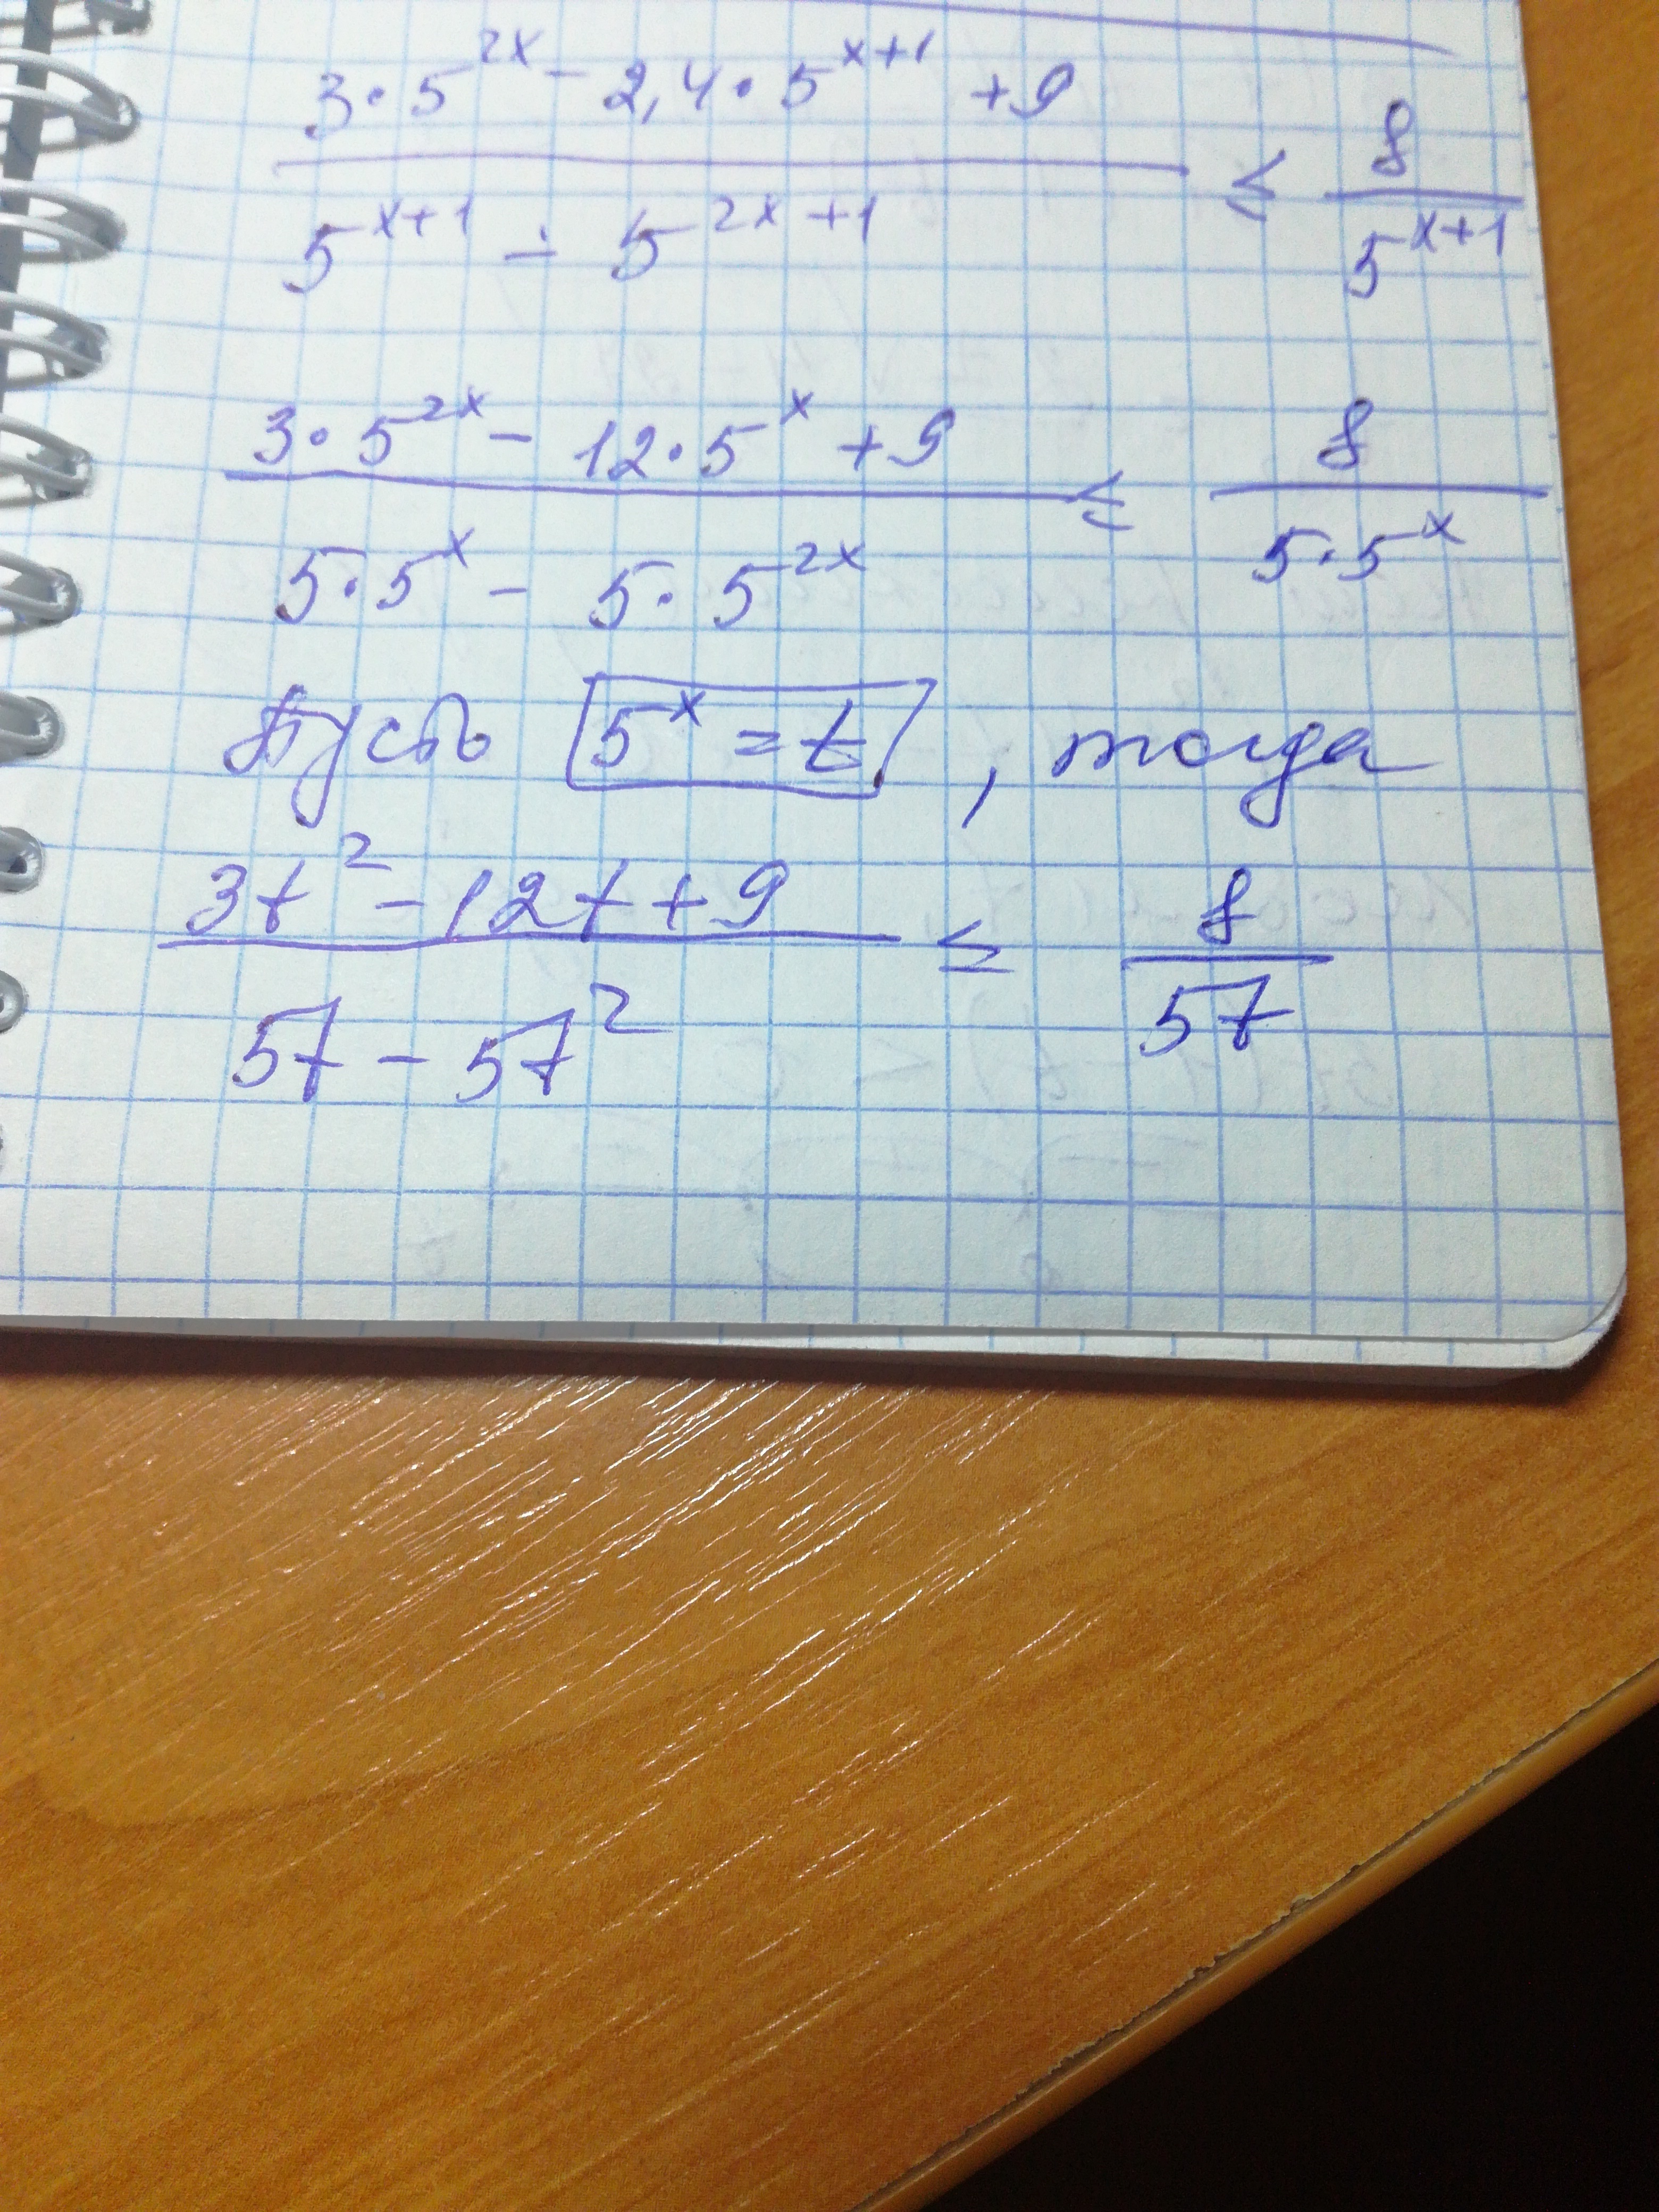 3·5^{2x} - 2,4·5^{x+1} + 9
5^{x+1} - 5^{2x+1}
≤ 8/5^{x+1}
3·5^{2x} - 12·5^x + 9
5·5^x - 5·5^{2x}
≤ 8/(5·5^x)
Пусть 5^x = t, тогда
3t² - 12t + 9
5t - 5t²
≤ 8/5t